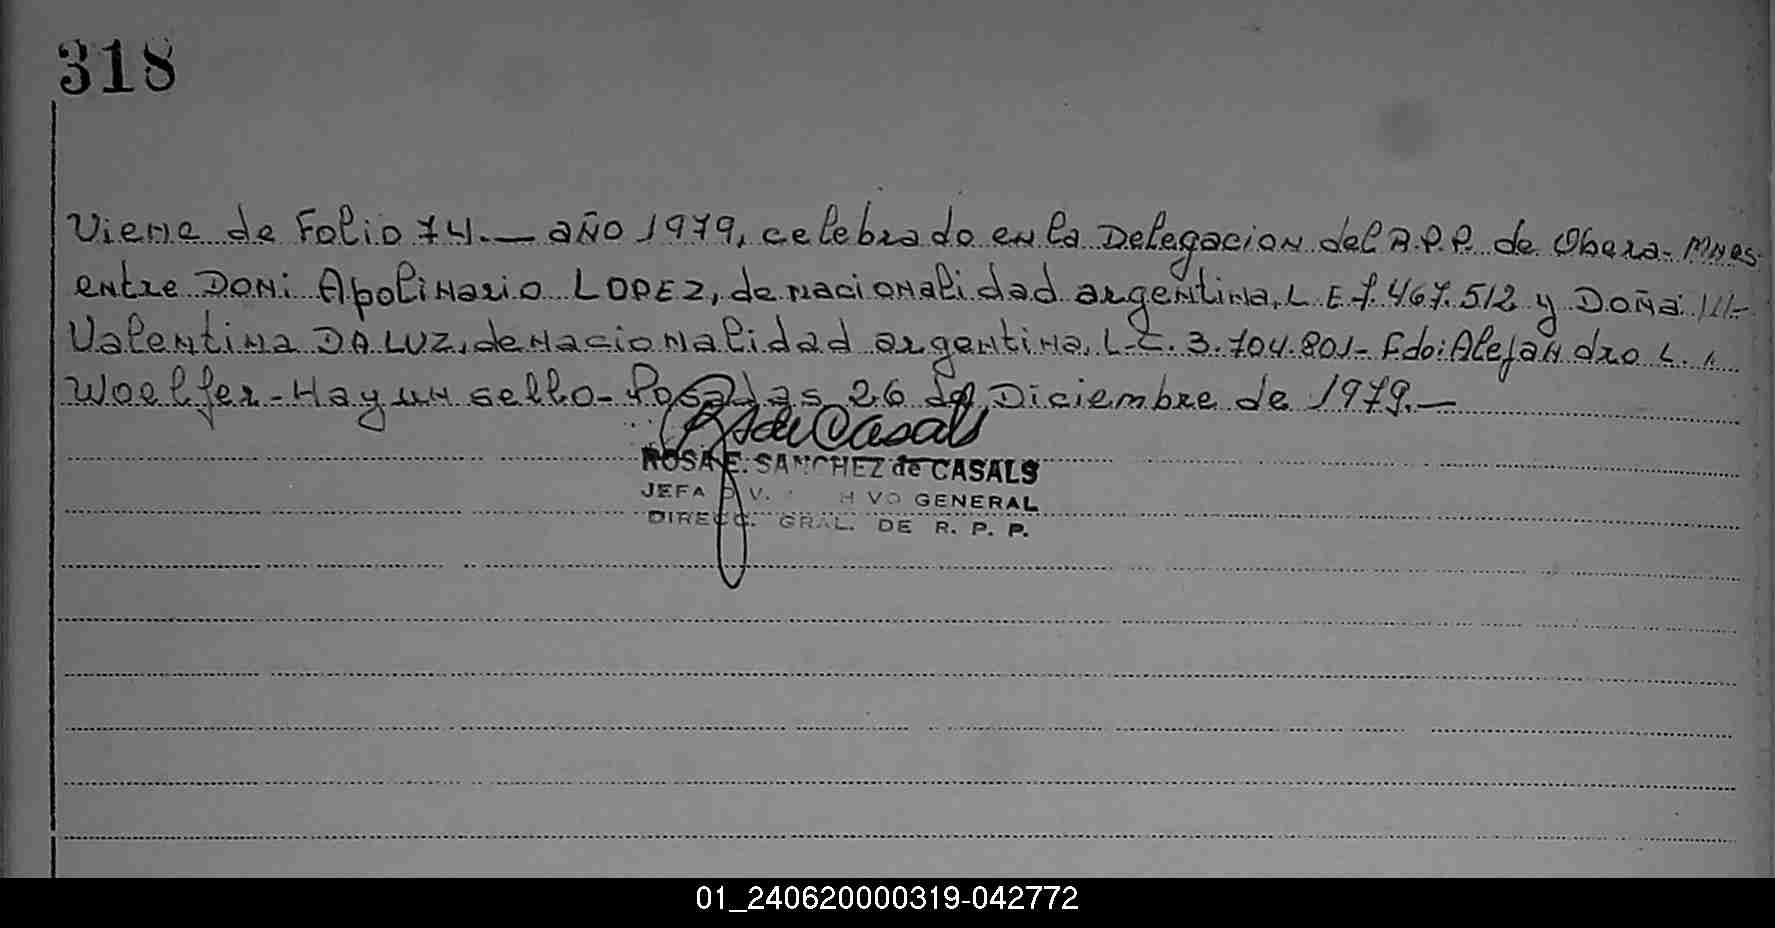 318
Viene de Folio 74.— año 1979, celebrado en la Delegacion del R.P.P. de Obera-Mnes
entre Don: Apolinario LOPEZ, de nacionalidad argentina, L.E. 7.467.512 y Doña:
Valentina DA LUZ, de nacionalidad argentina, L.C. 3.704.801- Fdo: Alejandro L.
Woelfer- Hay un sello- Posadas 26 de Diciembre de 1979.—
ROSA E. SANCHEZ de CASALS
JEFA GENERAL
DIRECC. GRAL. DE R. P. P.
01_240620000319-042772